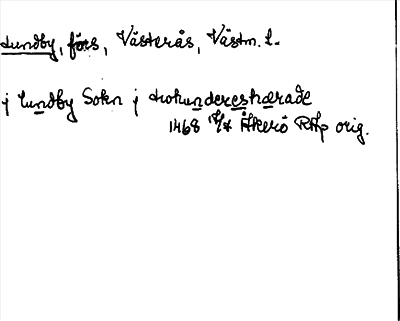 Lundby, förs, Västerås, Västm. l.
j lundby Sokn j trohundereshærade
1468 Åkerö RAp orig.